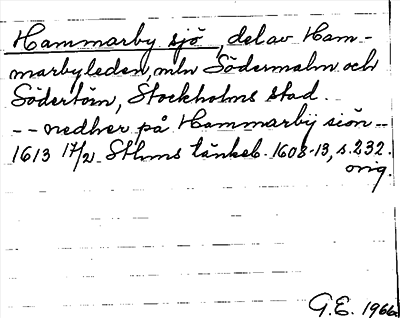 Hammarby sjö, del av Ham-
marbyleden, mln Södermalm och
Södertörn, Stockholms stad.
-- nedher på Hammarbÿ siön --
1613 17/2. Sthms tänkeb. 1608-13, s. 232.
orig.
G.E. 1966